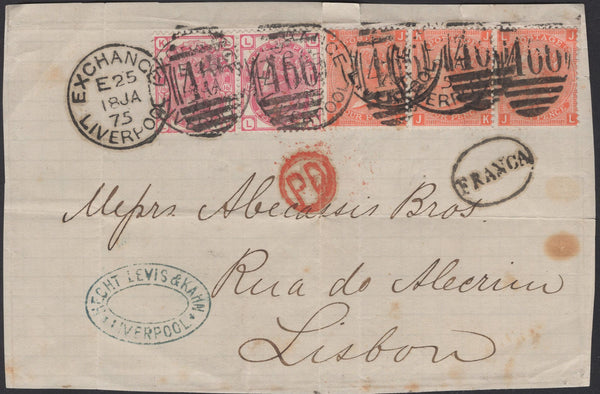 EXCHANGE
E 25
18 JA
75
LIVERPOOL
466
466
466
466
K L
L L
J J
J K
J L
PD
FRANCA
Messrs Abecassis Bros.
Rua do Alecrim
Lisbon
HECHT LEVIS & KAHN
LIVERPOOL